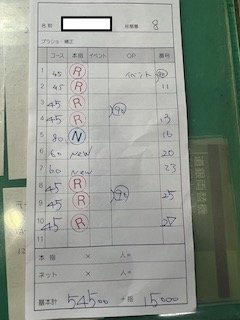 名刺 8
ブラショ・補正
コース 本指 イベント OP 番号
1 45 R イベント
2 45 R 11
3 45 R 90
4 45 R 13
5 80 N 16
6 60 New 20
7 60 New 23
8 45 R
9 45 R 90 25
10 45 R 27
11
本指 × 人=
ネット × 人=
基本計 54500 + 指 15000